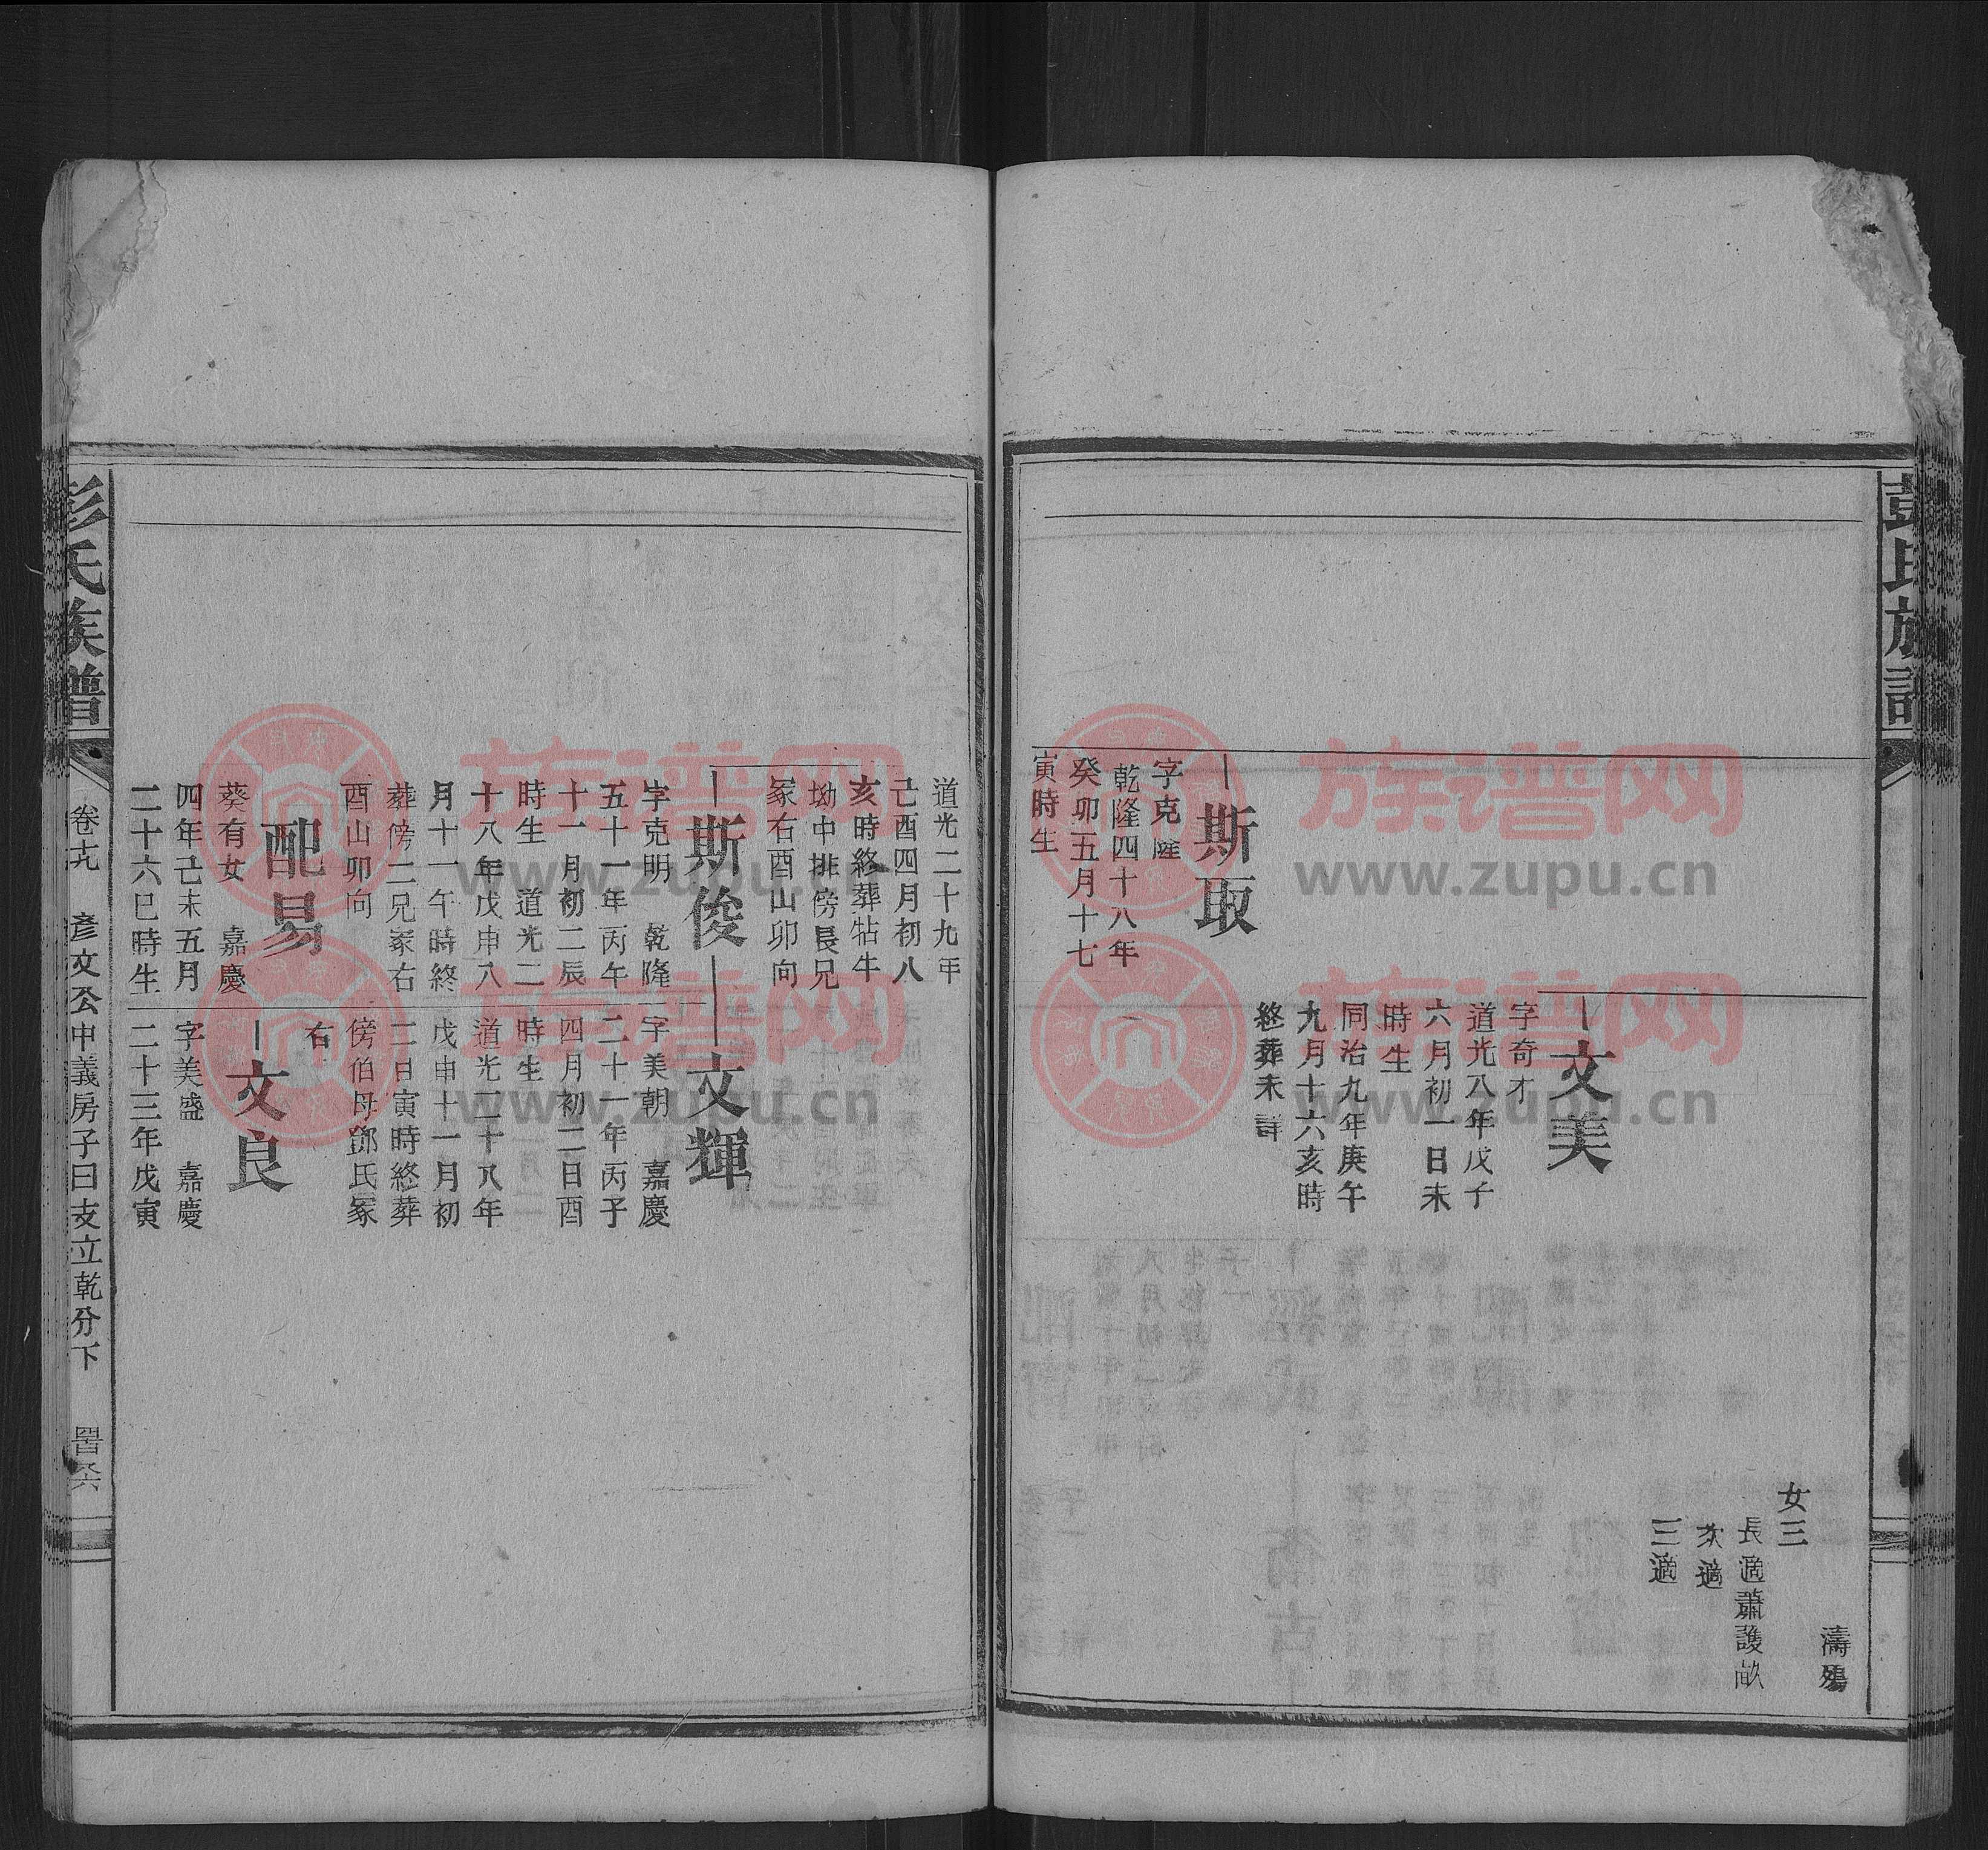 彭氏族譜
濤殤
女三
長適蕭護畝
次適
三適
文美
字奇才
道光八年戊子
六月初一日未
時生
同治九年庚午
九月十六亥時
終葬未詳
斯取
字克隆
乾隆四十八年
癸卯五月十七
寅時生
道光二十九年
己酉四月初八
亥時終葬牯牛
坳中排傍長兄
冢右酉山卯向
斯俊
字克明 乾隆
五十一年丙午
十一月初二辰
時生 道光二
十八年戊申八
月十一午時終
葬傍二兄冢右
酉山卯向
文輝
字美朝 嘉慶
二十一年丙子
四月初二日酉
時生
道光二十八年
戊申十一月初
二日寅時終葬
傍伯母鄧氏冢
右
配易
葵有女 嘉慶
四年己未五月
二十六巳時生
文良
字美盛 嘉慶
二十三年戊寅
彭氏族譜
卷十九 彥文公申義房子曰支立乾分下
四百六
族谱网
www.zupu.cn
族谱网
www.zupu.cn
族谱网
www.zupu.cn
族谱网
www.zupu.cn